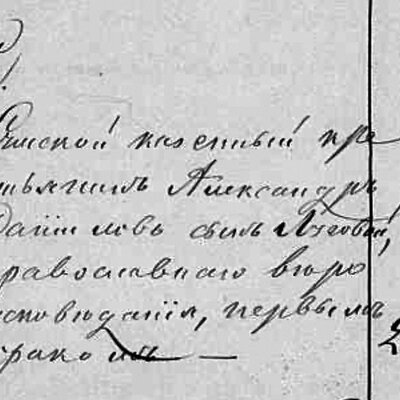 Омской казенный кре
стьянинъ Александръ
Даниловъ сынъ Луговой,
православнаго вѣро
исповѣданія, первымъ
бракомъ —